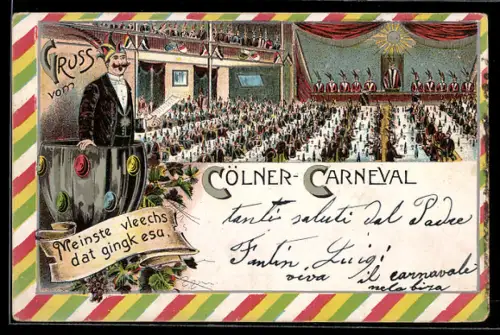 GRUSS
vom
CÖLNER-CARNEVAL
Meinste vleechs
dat gingk esu
tanti saluti dal Padre
Luigi
viva il carnevali